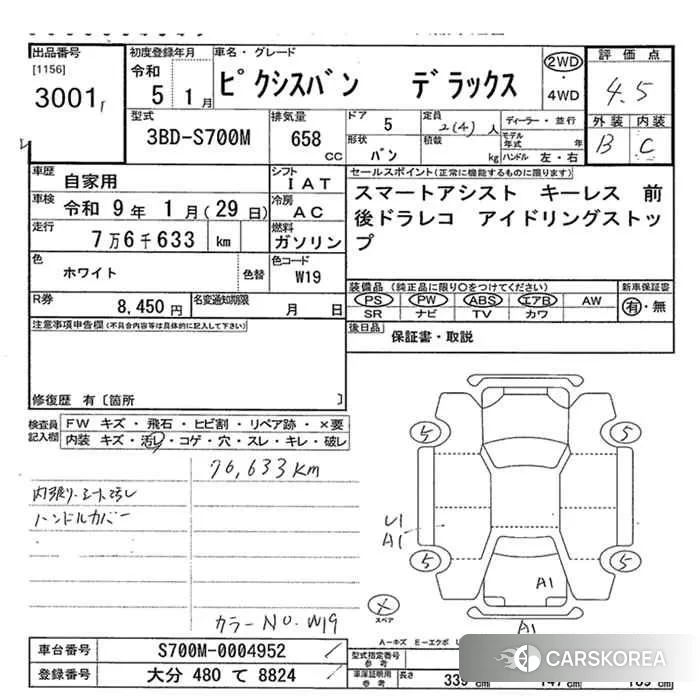 出品番号 初度登録年月 車名・グレード 評価点
[1156] 令和 ピクシスバン デラックス 2WD
3001 5 1月 4WD 4.5
型式 排気量 ドア 5 定員 2(4)人 ディーラー・並行 外装 内装
3BD-S700M 658 CC 形状 バン 積載 kg モデル年式 年 ハンドル 左・右 B C
車歴 自家用 シフト IAT セールスポイント(正常に機能するものに限ります)
車検 令和 9年 1月(29日) 冷房 AC スマートアシスト キーレス 前
走行 7万6千633 km 燃料 ガソリン 後ドラレコ アイドリングストッ
プ
色 ホワイト 色替 色コード W19
装備品(純正品に限り〇をつけてください) 新車保証書
R券 8,450円 名変通知期限 月 日 PS PW ABS エアB AW 有・無
SR ナビ TV カワ
注意事項申告欄(不具合内容等は具体的に記入して下さい) 後日品 保証書・取説
修復歴 有〔箇所 〕
検査員記入欄 FW キズ・飛石・ヒビ割・リペア跡・×要
内装 キズ・汚レ・コゲ・穴・スレ・キレ・破レ
76,633Km
内張り・シート汚レ
ハンドルカバー
5 5
U1
A1
5 5
A1
スペア
A1
カラーNo. W19
A-キズ E-エクボ
車台番号 S700M-0004952 型式指定番号 参考
登録番号 大分 480 て 8824 車庫証明用 参考 長さ 339 cm 147 cm 189 cm
CARSKOREA